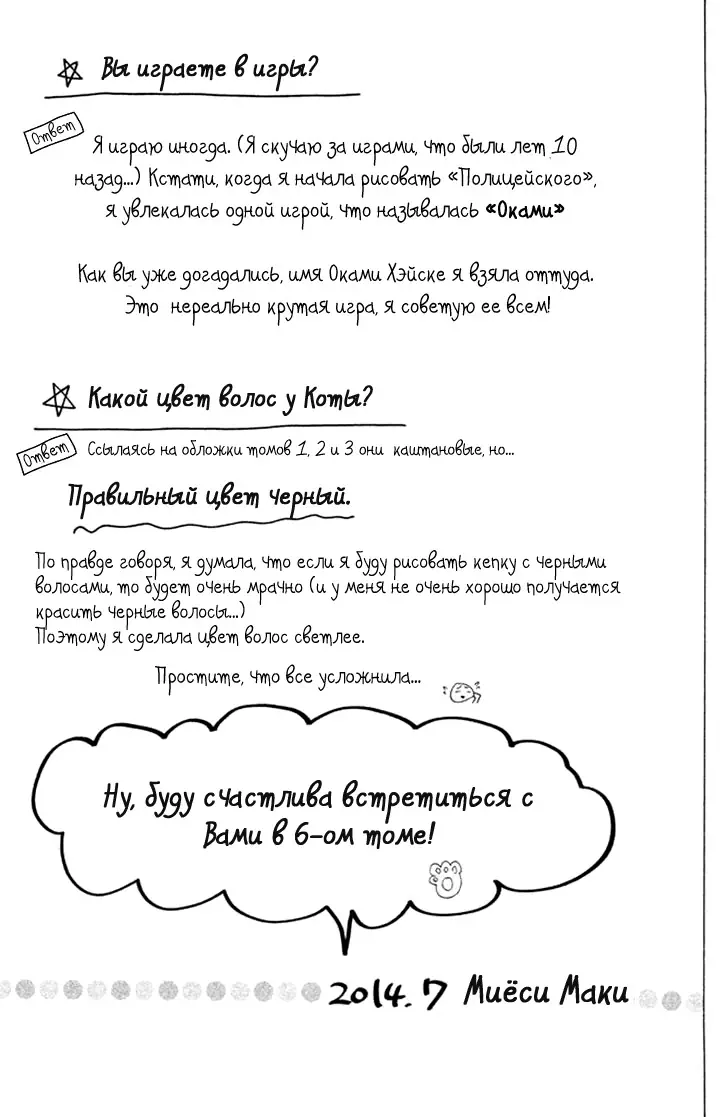 Вы играете в игры?
Ответ
Я играю иногда. (Я скучаю за играми, что были лет 10
назад...) Кстати, когда я начала рисовать «Полицейского»,
я увлекалась одной игрой, что называлась «Оками»
Как вы уже догадались, имя Оками Хэйске я взяла оттуда.
Это нереально крутая игра, я советую ее всем!
Какой цвет волос у Коты?
Ответ
Ссылаясь на обложки томов 1, 2 и 3 они каштановые, но...
Правильный цвет черный.
По правде говоря, я думала, что если я буду рисовать кепку с черными
волосами, то будет очень мрачно (и у меня не очень хорошо получается
красить черные волосы...)
Поэтому я сделала цвет волос светлее.
Простите, что все усложнила...
Ну, буду счастлива встретиться с
Вами в 6-ом томе!
2014.7 Миёси Маки